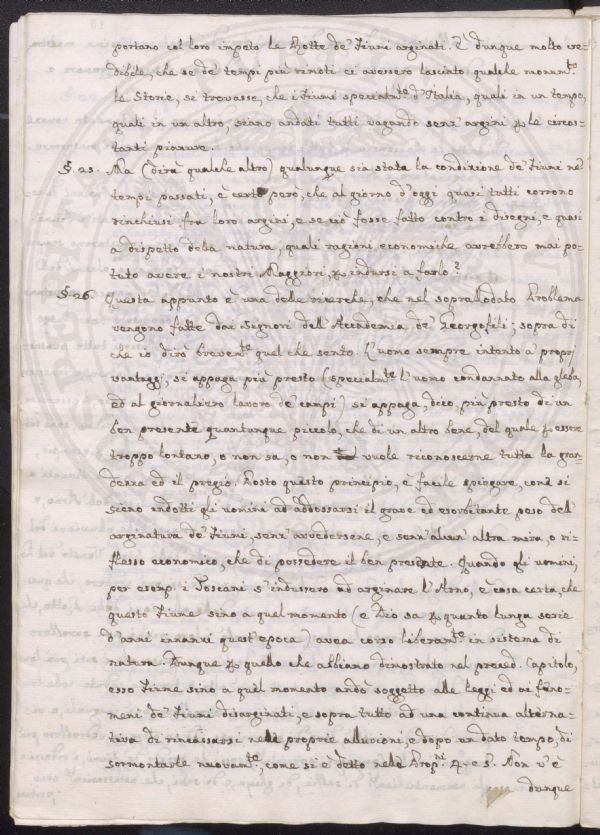 portano col loro impeto le Rotte de' Fiumi arginati. È dunque molto cre-
dibile, che se de' tempi più rimoti ci avessero lasciato qualche monum.to
le Storie, si trovasse, che i Fiumi specialm.te d'Italia, quali in un tempo,
quali in un altro, siano andati tutti vagando senz' argini p le circos-
tanti pianure.
§. 25. Ma (dirà qualche altro) qualunque sia stata la condizione de' Fiumi ne'
tempi passati, è certo però, che al giorno d'oggi quasi tutti corrono
rinchiusi fra loro argini, e se ciò fosse fatto contro i disegni, e quasi
a dispetto della natura, quali ragioni economiche avrebbero mai po-
tuto avere i nostri Maggiori, p indursi a farlo?
§. 26. Questa appunto è una delle ricerche, che nel sopralodato Problema
vengono fatte dai Signori dell'Accademia de' Georgofili; sopra di
che io dirò brevem.te quel che sento. L'uomo sempre intento a' proprj
vantaggi, si appaga più presto (specialm.te l'uomo condannato alla gleba,
ed al giornaliero lavoro de' campi) si appaga, dico, più presto di un
ben presente quantunque piccolo, che di un altro bene, del quale p essere
troppo lontano, o non sa, o non vuole riconoscerne tutta la gran-
dezza ed il pregio. Posto questo principio, è facile spiegare, come si
sieno indotti gli uomini ad addossarsi il grave ed esorbitante peso dell'
arginatura de' Fiumi, senz' avvedersene, e senz' alcun' altra mira, o ri-
flesso economico, che di possedere il ben presente. Quando gli uomini,
per esemp. i Toscani s'indussero ad arginare l'Arno, è cosa certa, che
questo Fiume sino a quel momento (e Dio sa p quanto lunga serie
d'anni innanzi quest'epoca) avea corso liberam.te in sistema di
natura. Dunque p quello che abbiamo dimostrato nel preced. Capitolo,
esso Fiume sino a quel momento andò soggetto alle leggi ed ai feno-
meni de' Fiumi disarginati, e sopra tutto ad una continua alterna-
tiva di rincassarsi nelle proprie alluvioni, e dopo un dato tempo, di
sormontarle nuovam.te, come si è detto nelle Prop.ni 4. e 5. Non v'è
dunque